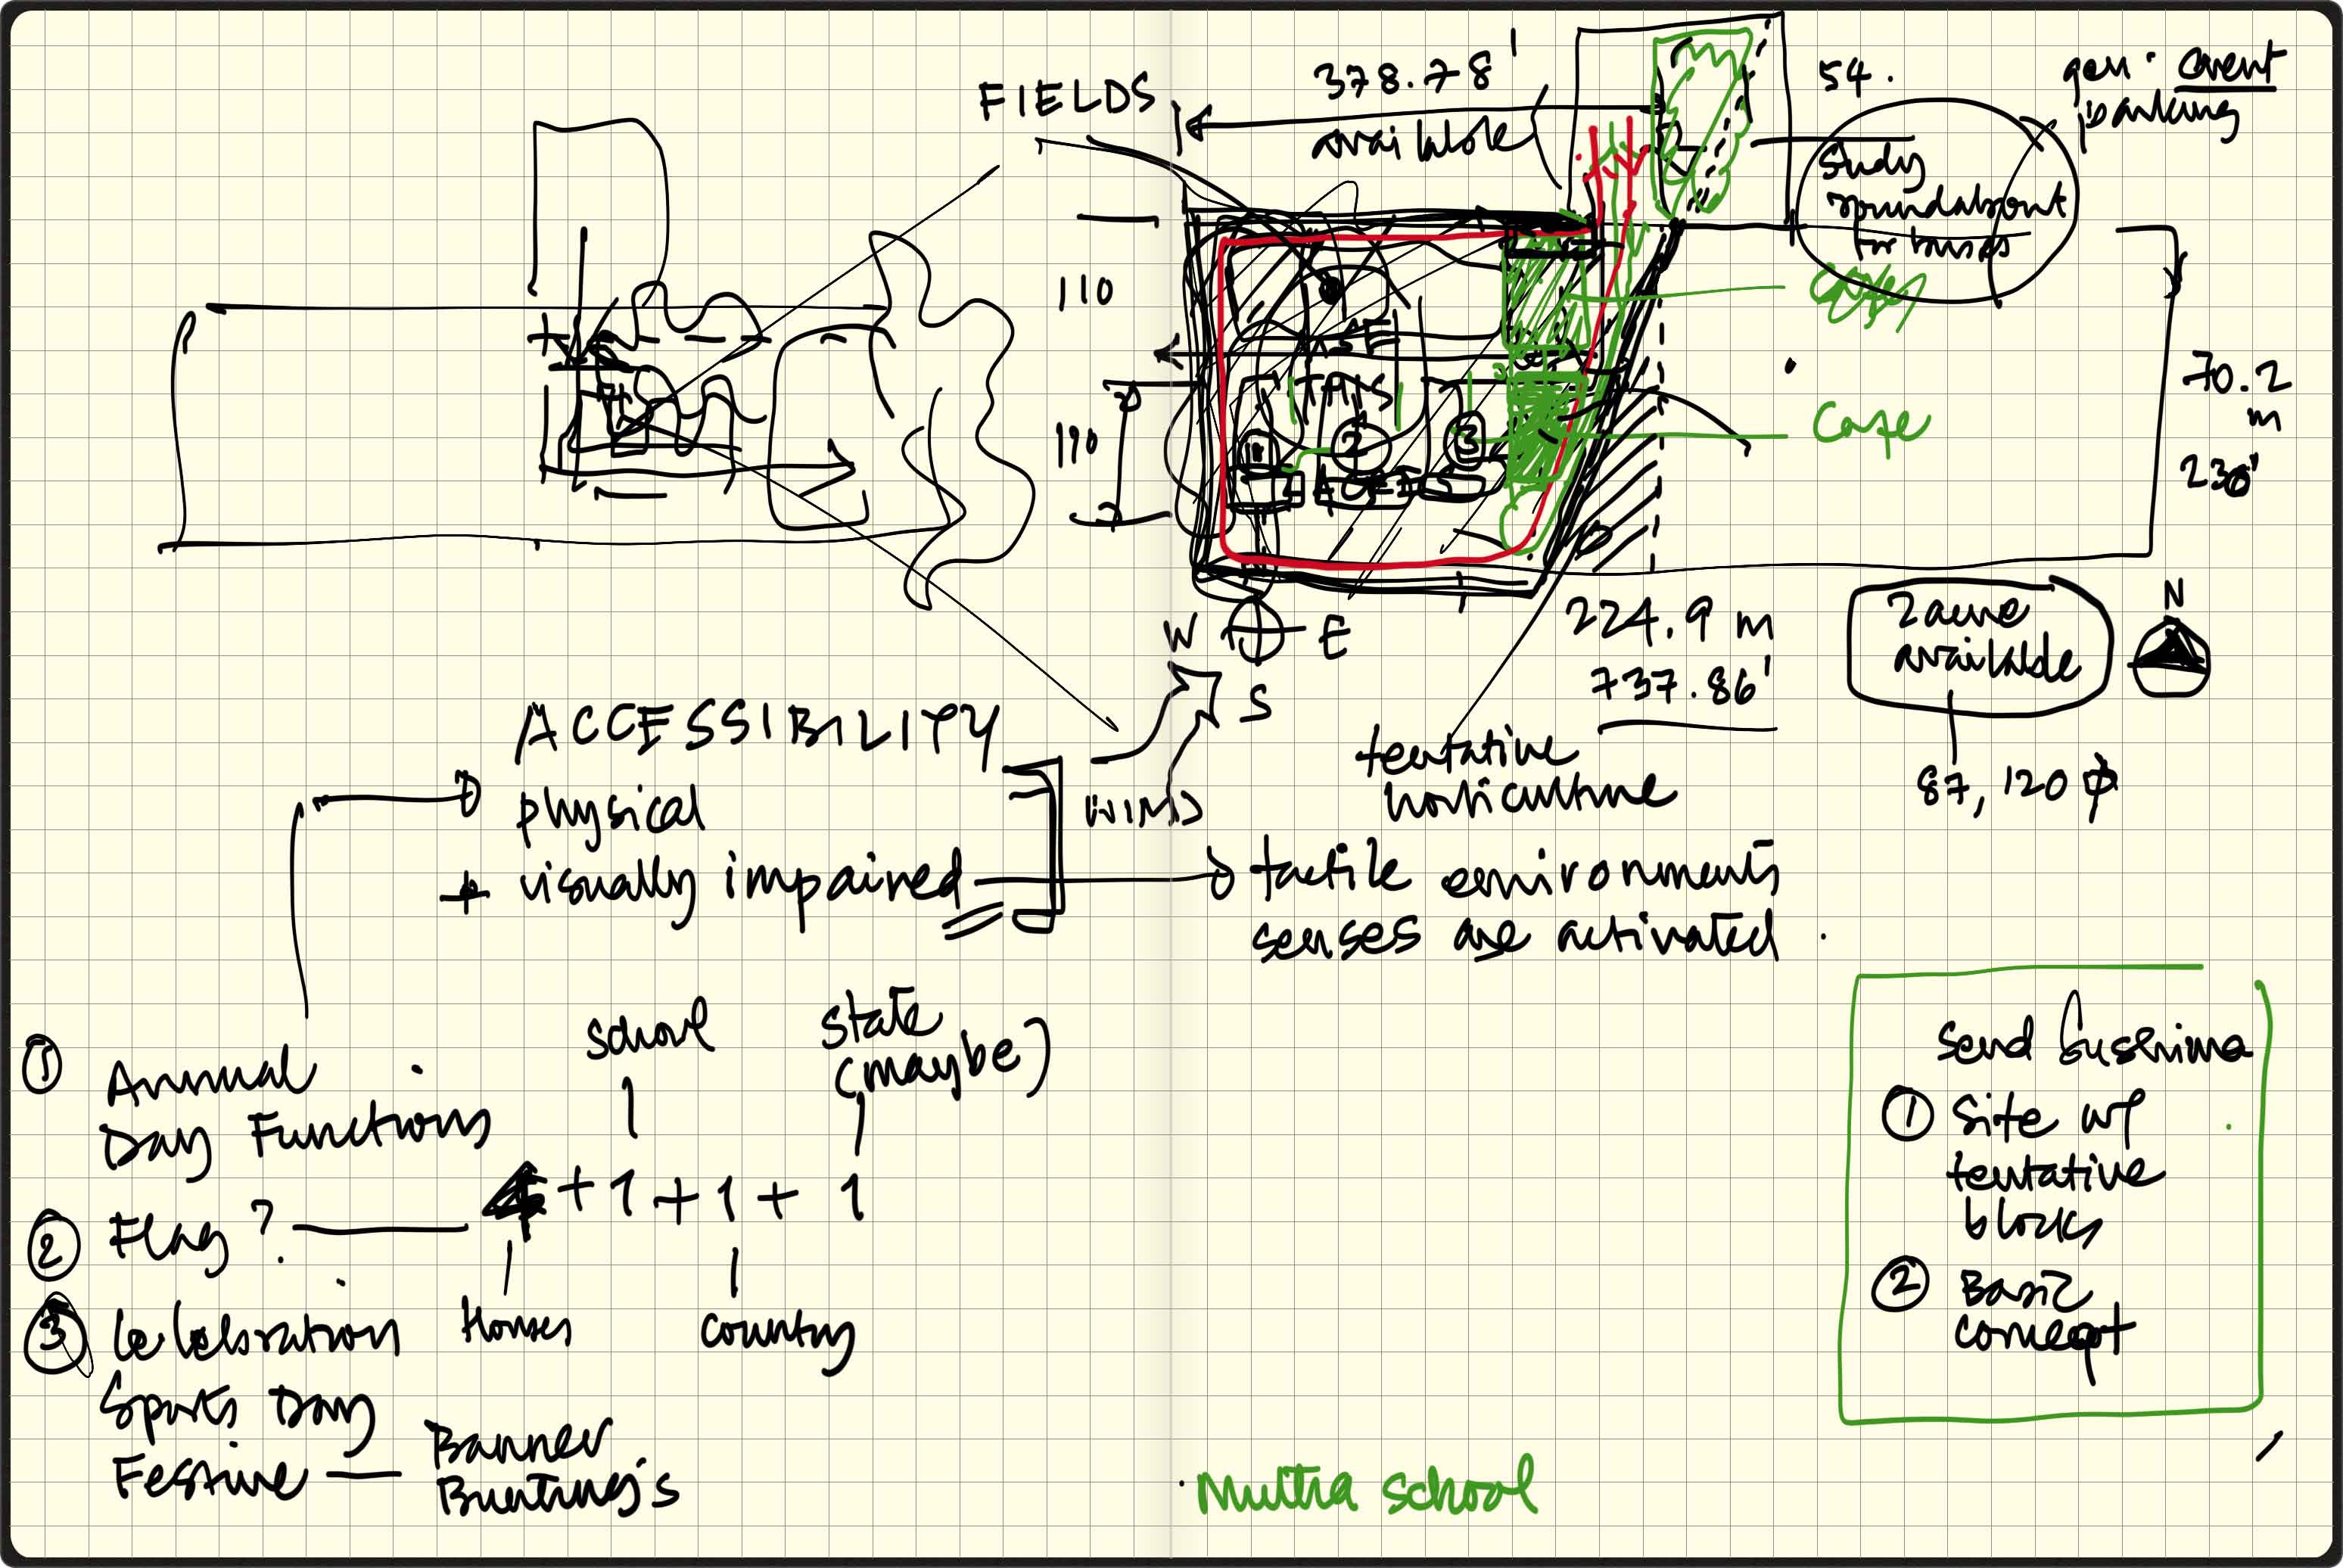 FIELDS
378.78'
available
54.
gen. event
parking
study
roundabout
for buses
110
190
1
2
3
Cafe
70.2
m
230'
W E
S
224.9 m
737.86'
2 acre
available
N
87,120
tentative
horticulture
WIND
ACCESSIBILITY
physical
+ visually impaired
tactile environments
senses are activated.
① Annual
Day Functions
② Flag?
4 + 1 + 1 + 1
school
state
(maybe)
Houses
Country
③ Celebration
Sports Day
Festive — Banner
Bunting's
Send
① Site w/
tentative
blocks
② Basic
concept
school